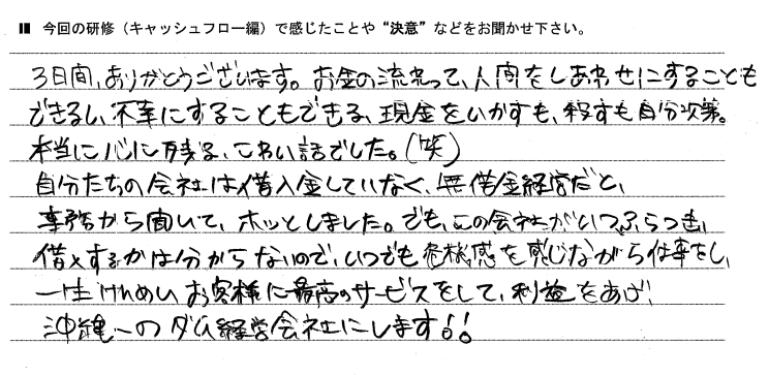 ■ 今回の研修（キャッシュフロー編）で感じたことや“決意”などをお聞かせ下さい。
3日間、ありがとうございます。お金の流れって、人間をしあわせにすることも
できるし、不幸にすることもできる、現金をいかすも、殺すも自分次第。
本当に心に残る、こわい話でした。(笑)
自分たちの会社は借入金していなく、無借金経営だと、
専務から聞いて、ホッとしました。でも、この会社がいつふらつき、
借入するかは分からないので、いつでも危機感を感じながら仕事をし、
一生けんめい お客様に最高のサービスをして、利益をあげ、
沖縄一のダム経営会社にします!!